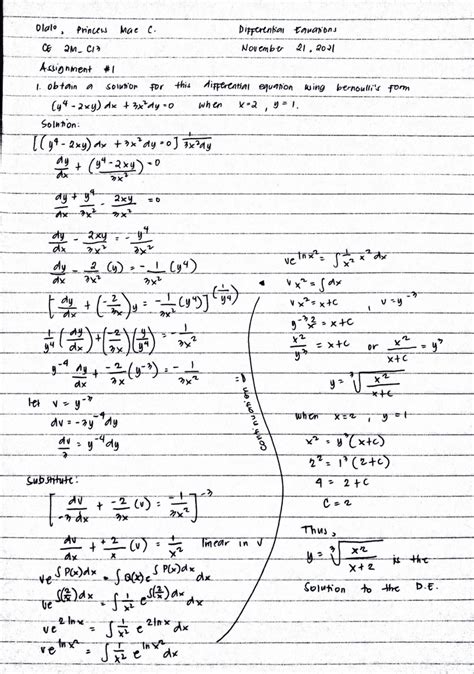 Olalo, Princess Mae C. Differential Equations
CE 2M_C13 November 21, 2021
Assignment #1
1. Obtain a solution for this differential equation using bernoulli's form
(y⁴ - 2xy) dx + 3x² dy = 0 when x=2, y=1.
Solution:
[(y⁴ - 2xy) dx + 3x² dy = 0] 1/3x²dy
dy/dx + (y⁴ - 2xy)/3x² = 0
dy/dx + y⁴/3x² - 2xy/3x² = 0
dy/dx - 2xy/3x² = - y⁴/3x²
dy/dx - 2/3x (y) = - 1/3x² (y⁴)
[dy/dx + (-2/3x) y = - 1/3x² (y⁴)] (1/y⁴)
1/y⁴ (dy/dx) + (-2/3x)(y/y⁴) = - 1/3x²
y⁻⁴ dy/dx + -2/3x (y⁻³) = - 1/3x²
let v = y⁻³
dv = -3y⁻⁴ dy
dv/3 = y⁻⁴ dy
Substitute:
[dv/-3dx + -2/3x (v) = -1/3x²]⁻³
dv/dx + +2/x (v) = 1/x² linear in v
ve^∫P(x)dx = ∫Q(x) e^∫P(x)dx dx
ve^∫(2/x)dx = ∫1/x² e^∫(2/x)dx dx
ve^2lnx = ∫1/x² e^2lnx dx
ve^lnx² = ∫1/x² e^lnx² dx
Continuation
ve^lnx² = ∫1/x² x² dx
vx² = ∫dx
vx² = x+c, v = y⁻³
y⁻³x² = x+c
x²/y³ = x+c or x²/x+c = y³
y = ³√x²/x+c
when x=2, y=1
x² = y³(x+c)
2² = 1³(2+c)
4 = 2+c
c = 2
Thus,
y = ³√x²/x+2 is the
solution to the D.E.